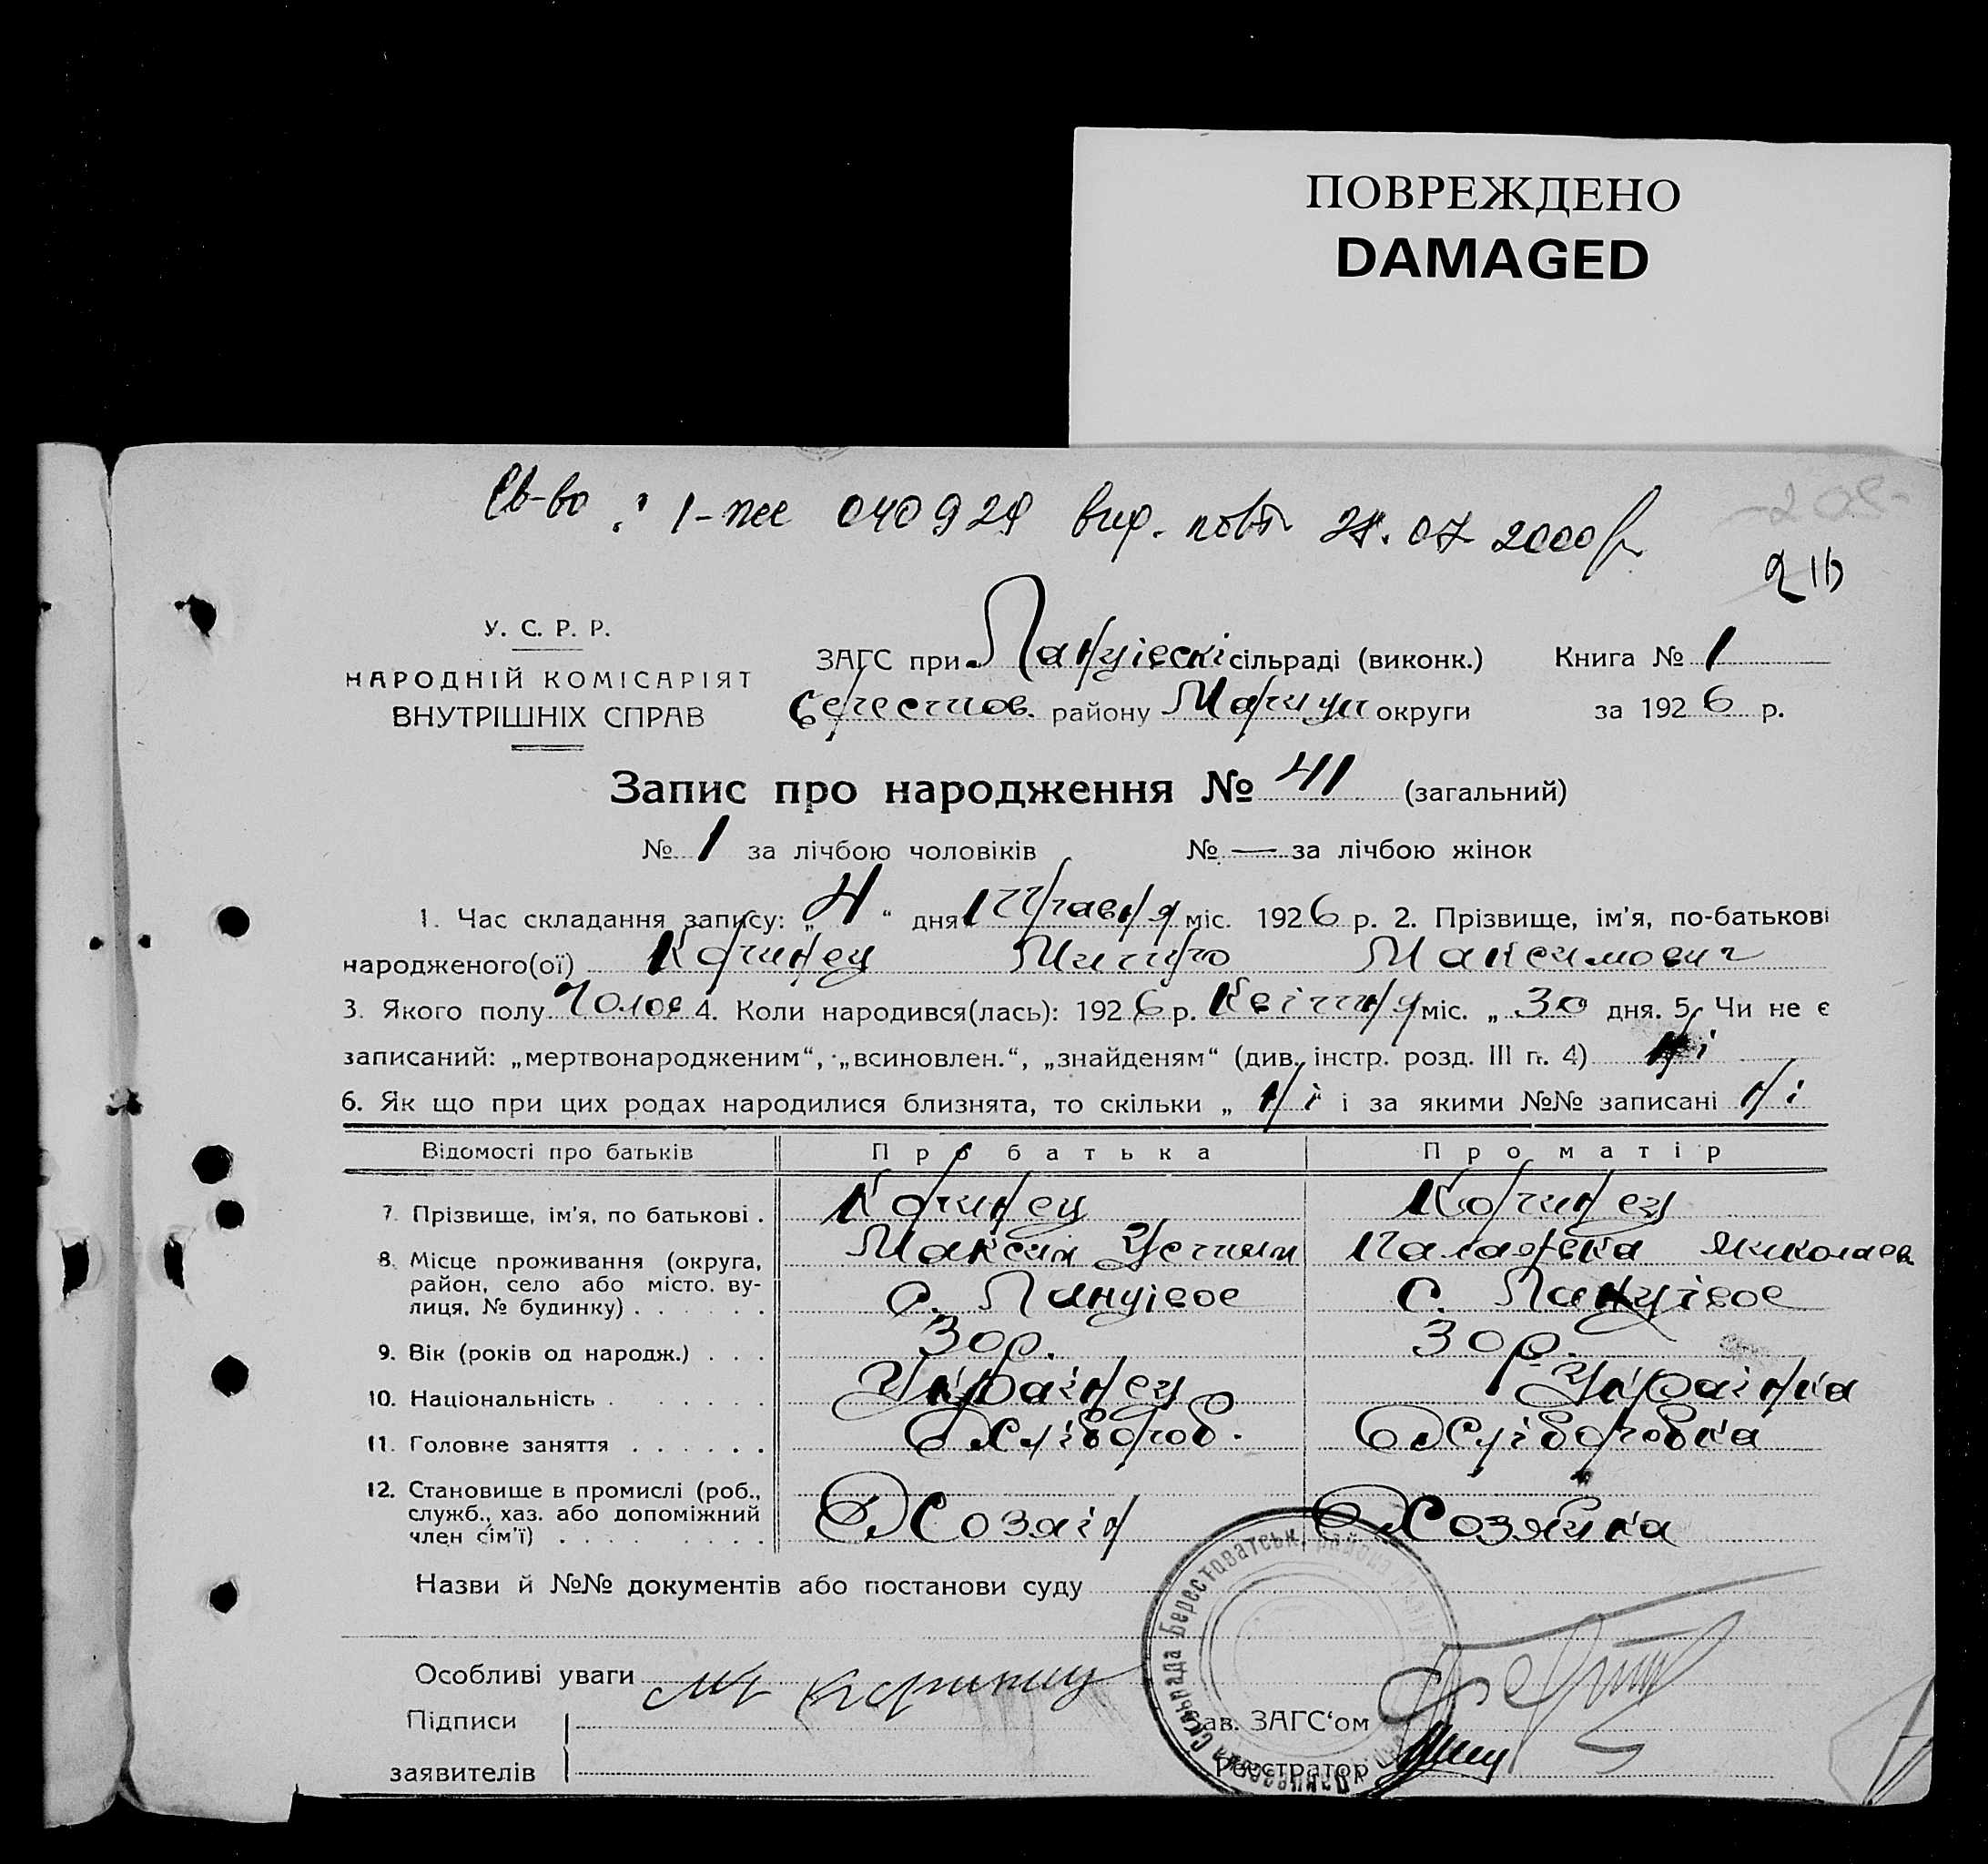 ПОВРЕЖДЕНО
DAMAGED
Св-во : 1-
040929 вид. повт. 28.07 2000 р.
У. С. Р. Р.
НАРОДНІЙ КОМІСАРІЯТ
ВНУТРІШНІХ СПРАВ
ЗАГС при Ланцівскі сільраді (виконк.) Книга № 1
Берестов. району Маріуп округи за 1926 р.
Запис про народження № 41 (загальний)
№ 1 за лічбою чоловіків № — за лічбою жінок
1. Час складання запису: „4“ дня Травня міс. 1926 р. 2. Прізвище, ім'я, по-батькові
народженого(ої) Коринец Максимович
3. Якого полу Чолов 4. Коли народився(лась): 1926 р. Квітня міс. „ 30 дня. 5. Чи не є
записаний: „мертвонародженим“, „всиновлен.“, „знайденям“ (див. інстр. розд. III п. 4) ні
6. Як що при цих родах народилися близнята, то скільки „ ні і за якими №№ записані ні
Відомості про батьків Про батька Про матір
7. Прізвище, ім'я, по батькові . Коринец Коринец
Максим Устим Палажка Миколаев
8. Місце проживання (округа,
район, село або місто, ву-
лиця, № будинку) . . . . . . с. Ланцівое С. Ланцівое
9. Вік (років од народж.) . . . 30 р. 30 р.
10. Національність . . . . . . . Українец Українка
11. Головне заняття . . . . . . Хлібороб. Хліборобка
12. Становище в промислі (роб.,
служб., хаз. або допоміжний
член сім'ї) . . . . . . . . Хозяін Хозяйка
Назви й №№ документів або постанови суду
Особливі уваги
Підписи
заявителів
Зав. ЗАГС'ом
Реєстратор
Сільрада Берестоватськ. района